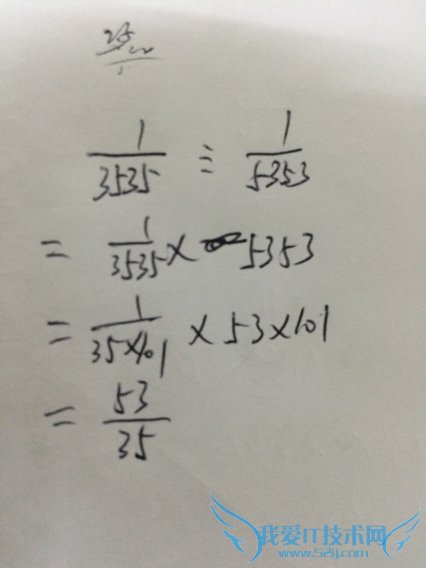 1/3535 ÷ 1/5353
= 1/3535 × 5353
= 1/35×101 × 53×101
= 53/35
我爱IT技术网
www.52ij.com